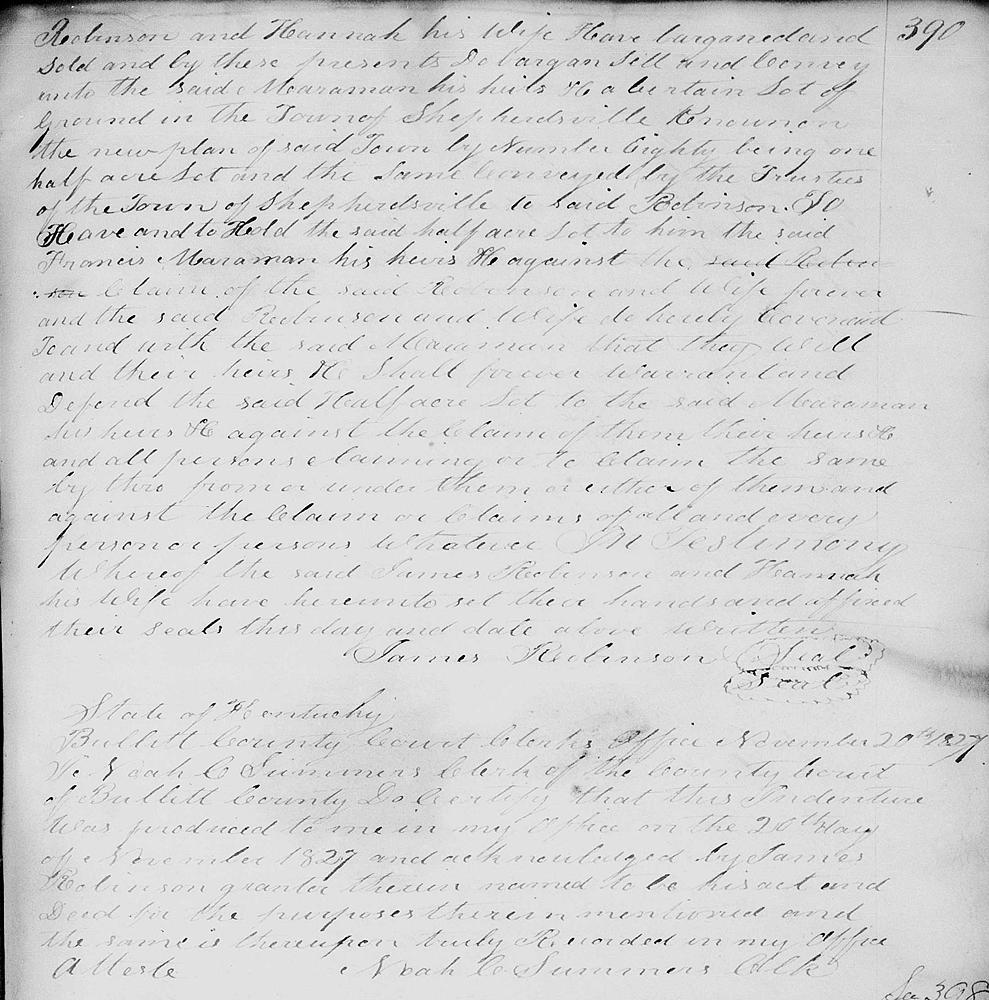 390
Robinson and Hannah his Wife Have barganed and
Sold and by these presents Do bargan Sell and Convey
unto the said Maraman his heirs &c a certain Lot of
Ground in the Town of Shepherdsville Known on
the new plan of said Town by Number Eighty being one
half acre Lot and the Same Conveyed by the Trustees
of the Town of Shepherdsville to said Robinson. To
Have and to Hold the said half acre Lot to him the said
Francis Maraman his heirs &c against the said Robin
son Claim of the said Robinson and Wife forever
and the said Robinson and Wife do hereby Covenant
To and with the said Maraman that they Will
and their heirs &c Shall forever Warrant and
Defend the said Half acre Lot to the said Maraman
his heirs &c against the Claim of them their heirs &c
and all persons claiming or to Claim the same
by thro from or under them or either of them and
against the Claim or Claims of all and every
person or persons Whatever In Testimony
Whereof the said James Robinson and Hannah
his Wife have hereunto set their hands and affixed
their Seals this day and date above Written
James Robinson Seal
Seal
State of Kentucky
Bullitt County Court Clerks Office November 20th 1827
I Noah C Summers Clerk of the County Court
of Bullitt County Do Certify that this Indenture
Was produced to me in my Office on the 20th day
of November 1827 and acknowledged by James
Robinson grantor therein named to be his act and
Deed for the purposes therein mentioned and
the same is thereupon truly Recorded in my Office
Atteste Noah C Summers Clk